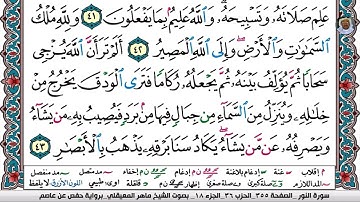 عَلِمَ صَلَاتَهُۥ وَتَسْبِيحَهُۥ ۗ وَٱللَّهُ عَلِيمٌۢ بِمَا يَفْعَلُونَ ٤١ وَلِلَّهِ مُلْكُ
ٱلسَّمَٰوَٰتِ وَٱلْأَرْضِ ۖ وَإِلَى ٱللَّهِ ٱلْمَصِيرُ ٤٢ أَلَمْ تَرَ أَنَّ ٱللَّهَ يُزْجِى
سَحَابًا ثُمَّ يُؤَلِّفُ بَيْنَهُۥ ثُمَّ يَجْعَلُهُۥ رُكَامًا فَتَرَى ٱلْوَدْقَ يَخْرُجُ مِنْ
خِلَٰلِهِۦ وَيُنَزِّلُ مِنَ ٱلسَّمَآءِ مِن جِبَالٍ فِيهَا مِنۢ بَرَدٍ فَيُصِيبُ بِهِۦ مَن يَشَآءُ
وَيَصْرِفُهُۥ عَن مَّن يَشَآءُ ۖ يَكَادُ سَنَا بَرْقِهِۦ يَذْهَبُ بِٱلْأَبْصَٰرِ ٤٣
سورة النور _ الصفحة ٣٥٥ _ الحزب ٣٦ _ الجزء ١٨ _ بصوت الشيخ ماهر المعيقلي _ برواية حفص عن عاصم